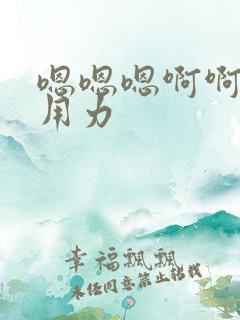 嗯嗯嗯啊啊
用力
幸福飘飘
未经同意禁止转载